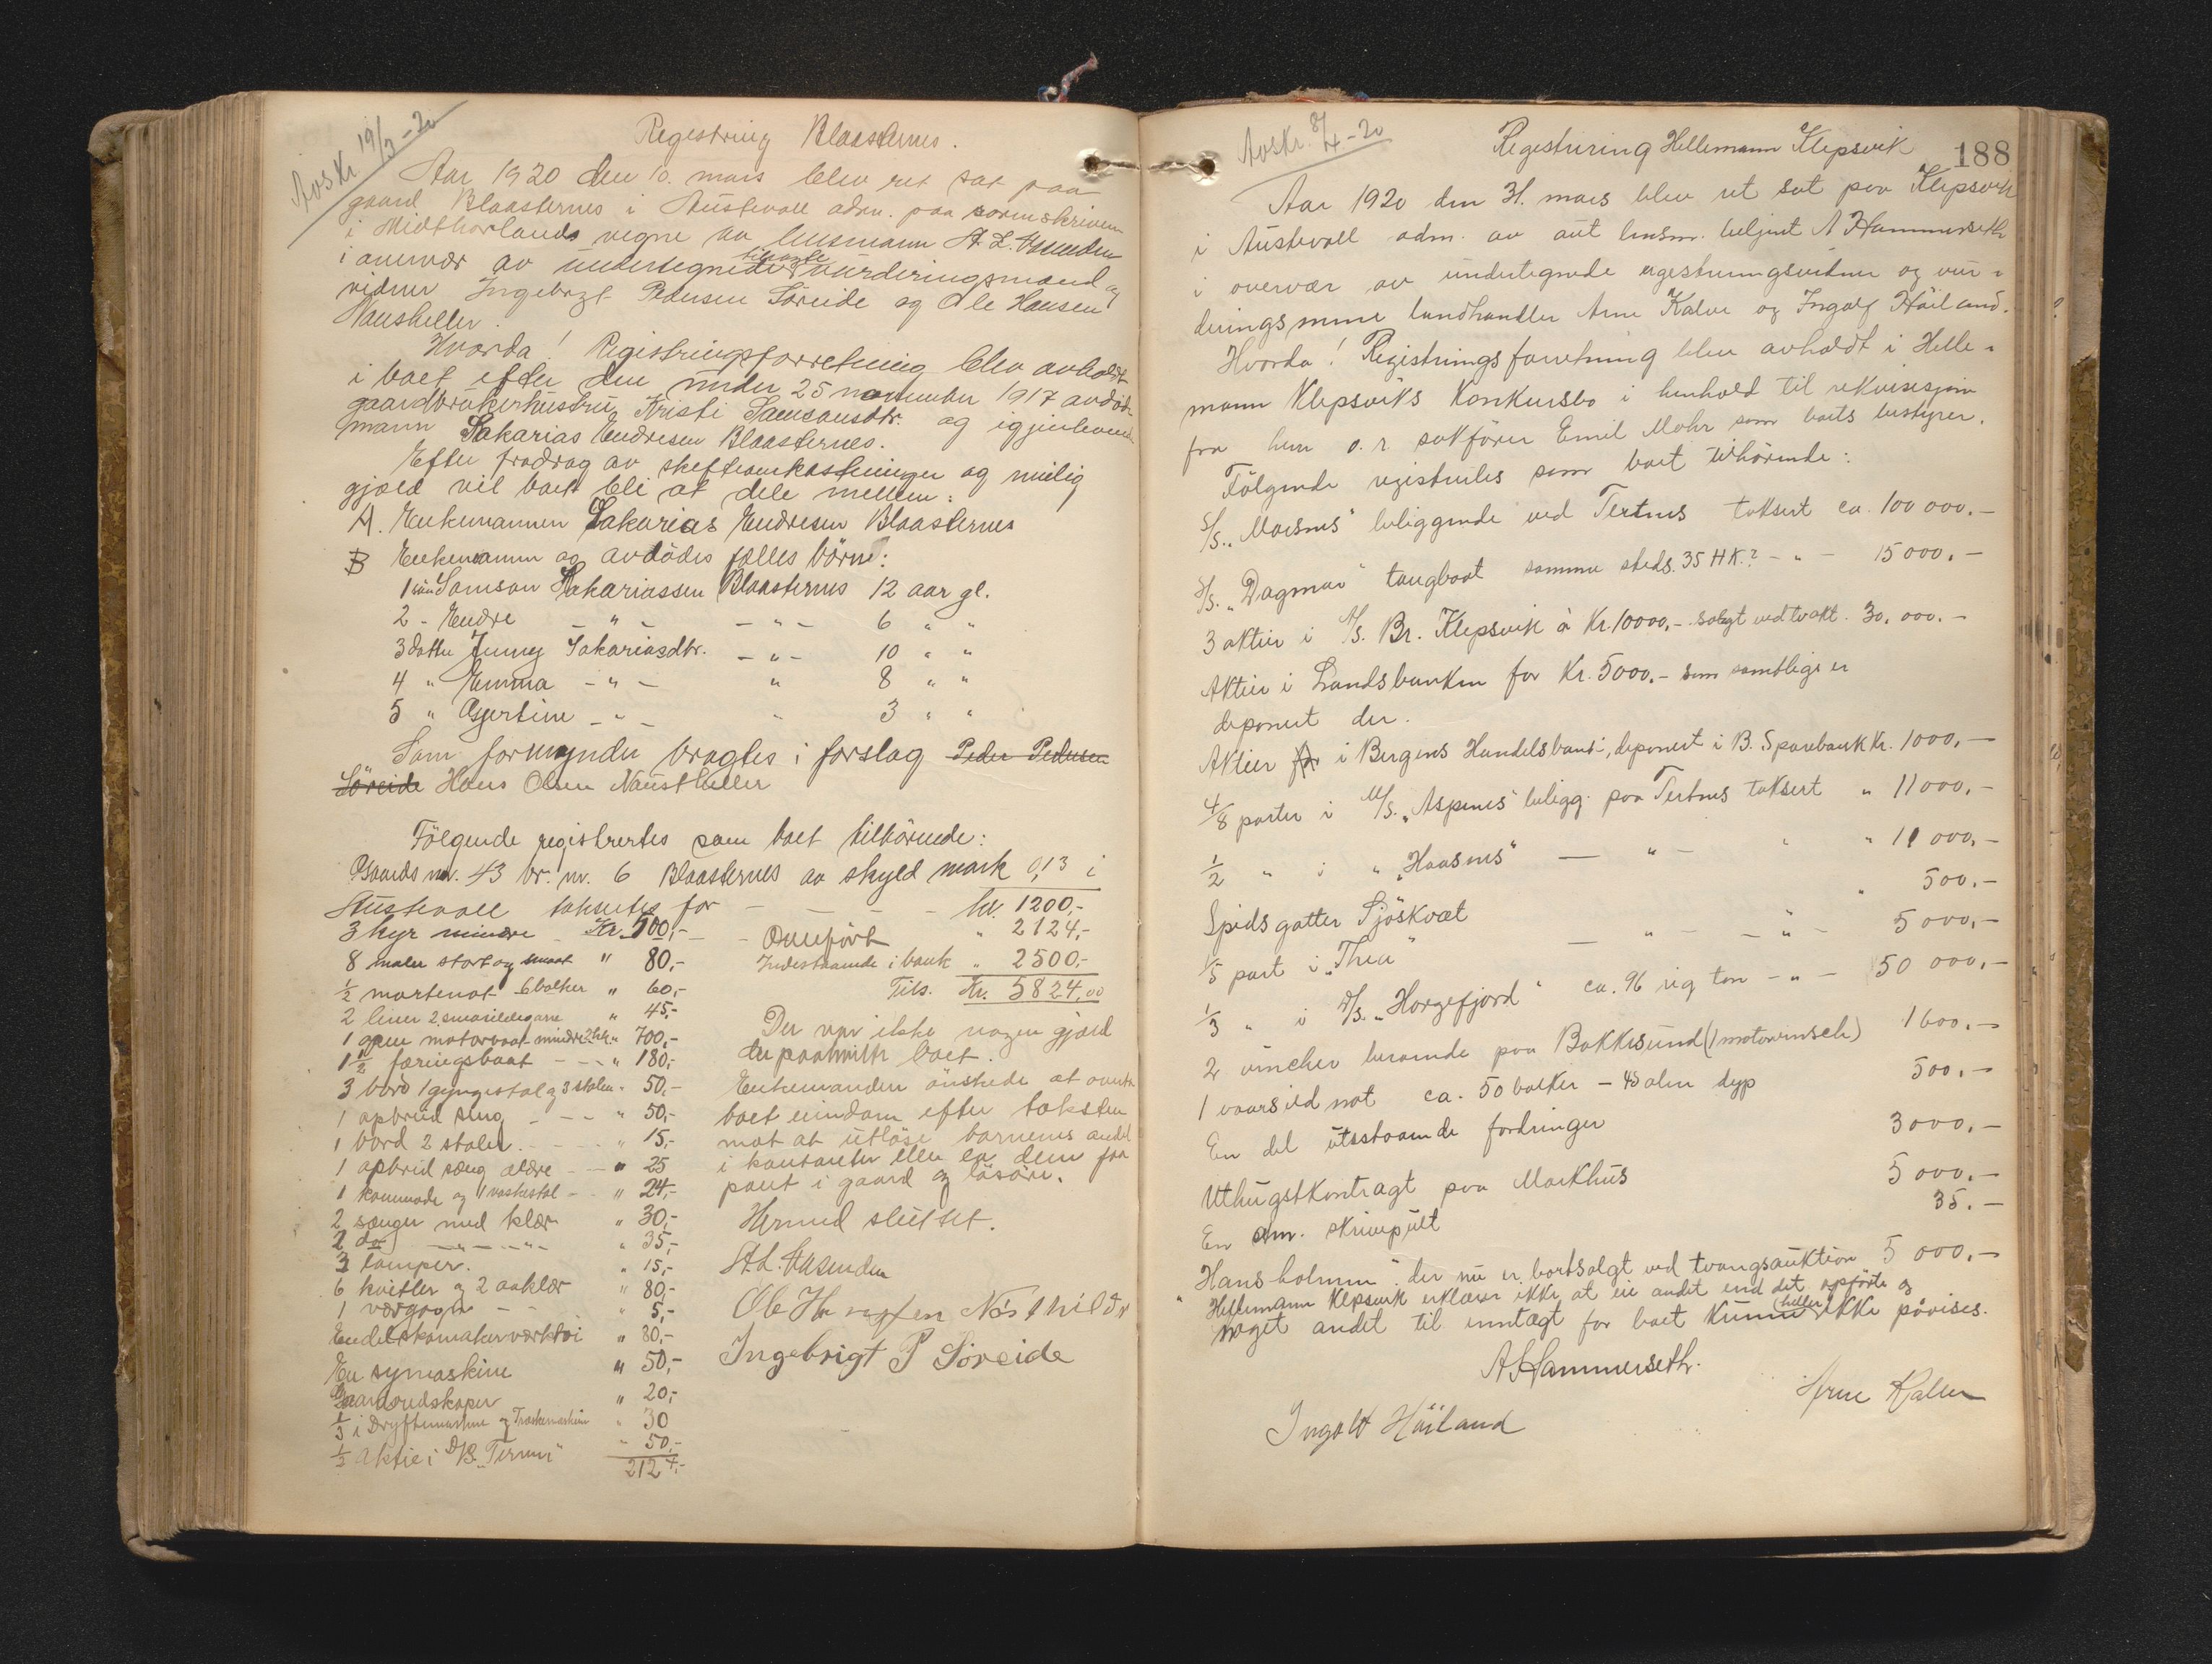 Avskr 19/3-20
Registring Blaasternes.
Aar 1920 den 10. mars blev ret sat paa
gaard Blaasternes i Austevoll adm. paa sorenskriveren
i Midthorlands vegne av lensmann St. L. Vasenden
i overvær av undertegnede tilsagte vurderingsmænd og
vidner Ingebrigt Pedersen Söreide og Ole Hansen
Naustheller.
Hvorda! Registringsforretning blev avholdt
i boet efter den under 25 november 1917 avdöde
gaardbrukerhustru Kristi Samsonsdtr. og igjenlevende
mann Sakarias Endresen Blaasternes.
Efter fradrag av skifteomkostninger og mulig
gjæld vil boet bli at dele mellem:
A. Enkemannen Sakarias Endresen Blaasternes
B Enkemann og avdödes fælles börn:
1 sön Samson Sakariassen Blaasternes 12 aar gl.
2 - Endre - " - - " - 6 " "
3 datter Jenny Sakariasdtr. - " - 10 " "
4 " Emma - " - " 8 " "
5 " Gjertine - " - " 3 " "
Som formynder bragtes i forslag Peder Pedersen
Söreide Hans Olsen Naustheller
Fölgende registrertes som boet tilhörende:
Gaards nr. 43 br. nr. 6 Blaasternes av skyld mark 0,13 i
Austevoll taksertes for - - - - kr. 1200,-
3 kyr mindre - Kr. 500,-
8 maler stort og smaat " 80,-
1/2 mortenot 6 bolker " 60,-
2 liner 2 smaasildegarn " 45,-
1 open motorbaat mindre 2 hk. " 700,-
1 1/2 færingsbaat - - " 180,-
3 bord 1 gyngestol og 3 stoler " 50,-
1 opbred seng - - - " 50,-
1 bord 2 stoler - - - " 15,-
1 opbred sæng ældre - - " 25
1 kommode og 1 vaskestol - - " 24,-
2 sænger med klær " 30,-
2 do - " - - " - " 35,-
3 lamper. " 15,-
6 kvitler og 2 aaklær " 80,-
1 vævgogn - - " 5,-
Endel skomakerverktöi " 80,-
En symaskine " 50,-
Gaardsredskaper " 20,-
1/5 i Dryftemaskine og Træskemaskin " 30
1/2 Aktie i D/S. "Ternen" " 50,-
2124,-
Overfört " 2124,-
Indestaaende i bank " 2500,-
Tils. Kr. 5824,00
Der var ikke nogen gjæld
der paahvilte boet.
Enkemanden önskede at overta
boet eiendom efter taksten
mot at utlöse barnenes andel
i kontanter eller la dem faa
pant i gaard og lösöre.
Hermed sluttet.
St.L. Vasenden
Ole Hansen Nösthilder
Ingebrigt P Söreide
Avskr. 8/4-20
Registrering Hellemann Klepsvik 188
Aar 1920 den 31. mars blev ret sat paa Klepsvik
i Austevoll adm. av aut lensm. betjent A Hammerseth
i overvær av undertegnede registreringsvidner og vur-
deringsmenn landhandler Arne Kalve og Ingolf Höiland.
Hvorda! Registringsforretning blev avholdt i Helle-
mann Klepsviks Konkursbo i henhold til rekvisisjon
fra herr o. r. sakförer Emil Mohr som boets bestyrer.
Fölgende registreres som boet tilhörende:
S/S. "Maisnes" beliggende ved Tertnes taksert ca. 100 000.-
S/S. "Dagmar" taugbaat samme steds. 35 HK.? - " - 15 000.-
3 aktier i A/S. Br. Klepsvik à Kr. 10000.- solgt ved tvakt. 30.000.-
Aktier i Landsbanken for Kr. 5000.- som samtlige er
deponert der.
Aktier for i Bergens Handelsbank, deponert i B. Sparebank Kr. 1000.-
4/8 parter i M/S. "Aspenes" beligg. paa Tertnes taksert " 11 000.-
1/2 " i " "Haasnes" - " - " " 11 000.-
Spidsgatter Sjöskvæt " 500.-
1/5 part i "Thea" - " - - " - 5 000.-
1/3 " i D/S. "Horgefjord" ca. 96 reg ton - " - 50 000.-
2 vincher beroende paa Bakkesund (1 motorvinsch) 1600.-
1 vaarsild not ca. 50 bolker - 45 alen dyp 500.-
En del utestaaende fordringer 3000.-
Uthugstkontragt paa Markhus 5 000.-
En am. skrivepult 35.-
"Hansholmen" der nu er bortsolgt ved tvangsauktion 5 000.-
Hellemann Klepsvik erklærer ikke at eie andet end det opförte og
noget andet til inntægt for boet kunne heller ikke påvises.
A Hammerseth.
Arne Kalve
Ingolf Höiland